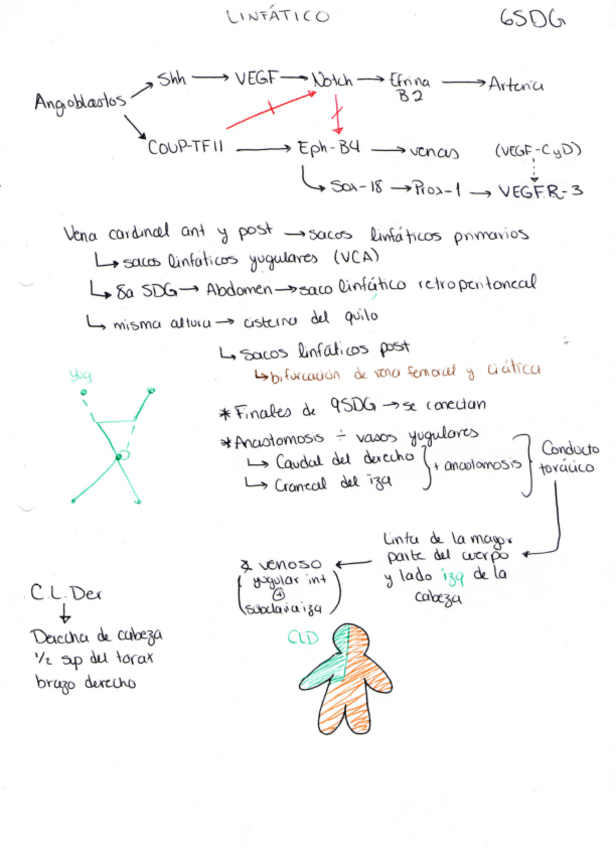 LINFÁTICO 6SDG
Angioblastos
Shh → VEGF → Notch → Efrina B2 → Arteria
COUP-TFII → Eph-B4 → venas (VEGF-C y D)
↳ Sox-18 → Prox-1 → VEGFR-3
Vena cardinal ant y post → sacos linfáticos primarios
↳ sacos linfáticos yugulares (VCA)
↳ 8a SDG → Abdomen → saco linfático retroperitoneal
↳ misma altura → cisterna del quilo
↳ sacos linfáticos post
↳ bifurcación de vena femoral y ciática
yug
* Finales de 9SDG → se conectan
* Anastomosis ÷ vasos yugulares
↳ Caudal del derecho
↳ Craneal del izq
+ anastomosis
Conducto
torácico
Linfa de la mayor
parte del cuerpo
y lado izq de la
cabeza
venoso
(yugular int
+
subclavia izq)
C.L.Der
↓
Derecha de cabeza
1/2 sup del torax
brazo derecho
CLD